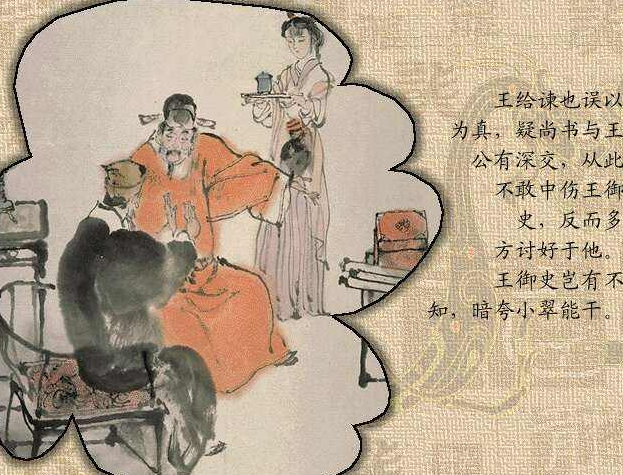 王给谏也误以
为真，疑尚书与王
公有深交，从此
不敢中伤王御
史，反而多
方讨好于他。
王御史岂有不
知，暗夸小翠能干。